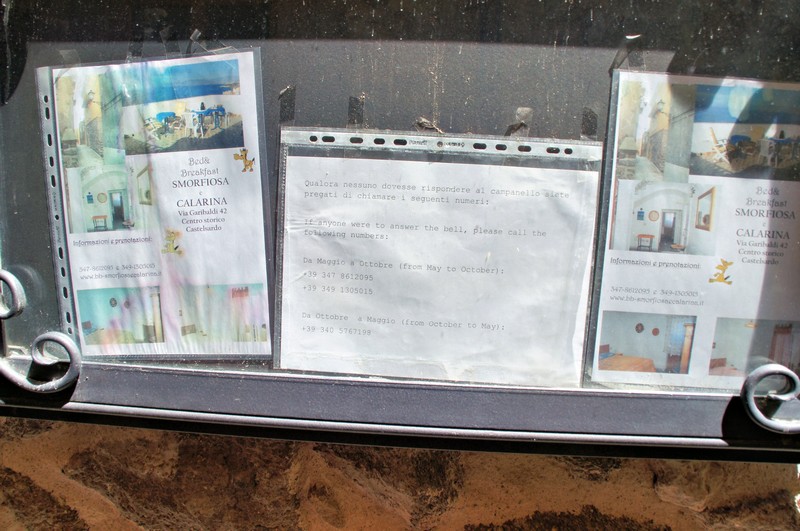 Bed&
Breakfast
SMORFIOSA
e
CALARINA
Via Garibaldi 42
Centro storico
Castelsardo
Informazioni e prenotazioni:
347-8612095 e 349-1005015
www.bb-smorfiosacalarina.it
Qualora nessuno dovesse rispondere al campanello siete
pregati di chiamare i seguenti numeri:
If anyone were to answer the bell, please call the
following numbers:
Da Maggio a Ottobre (from May to October):
+39 347 8612095
+39 349 1005015
Da Ottobre a Maggio (from October to May):
+39 340 5767108
Bed&
Breakfast
SMORFIOSA
e
CALARINA
Via Garibaldi 42
Centro storico
Castelsardo
Informazioni e prenotazioni:
347-8612095 e 349-1005015
www.bb-smorfiosacalarina.it